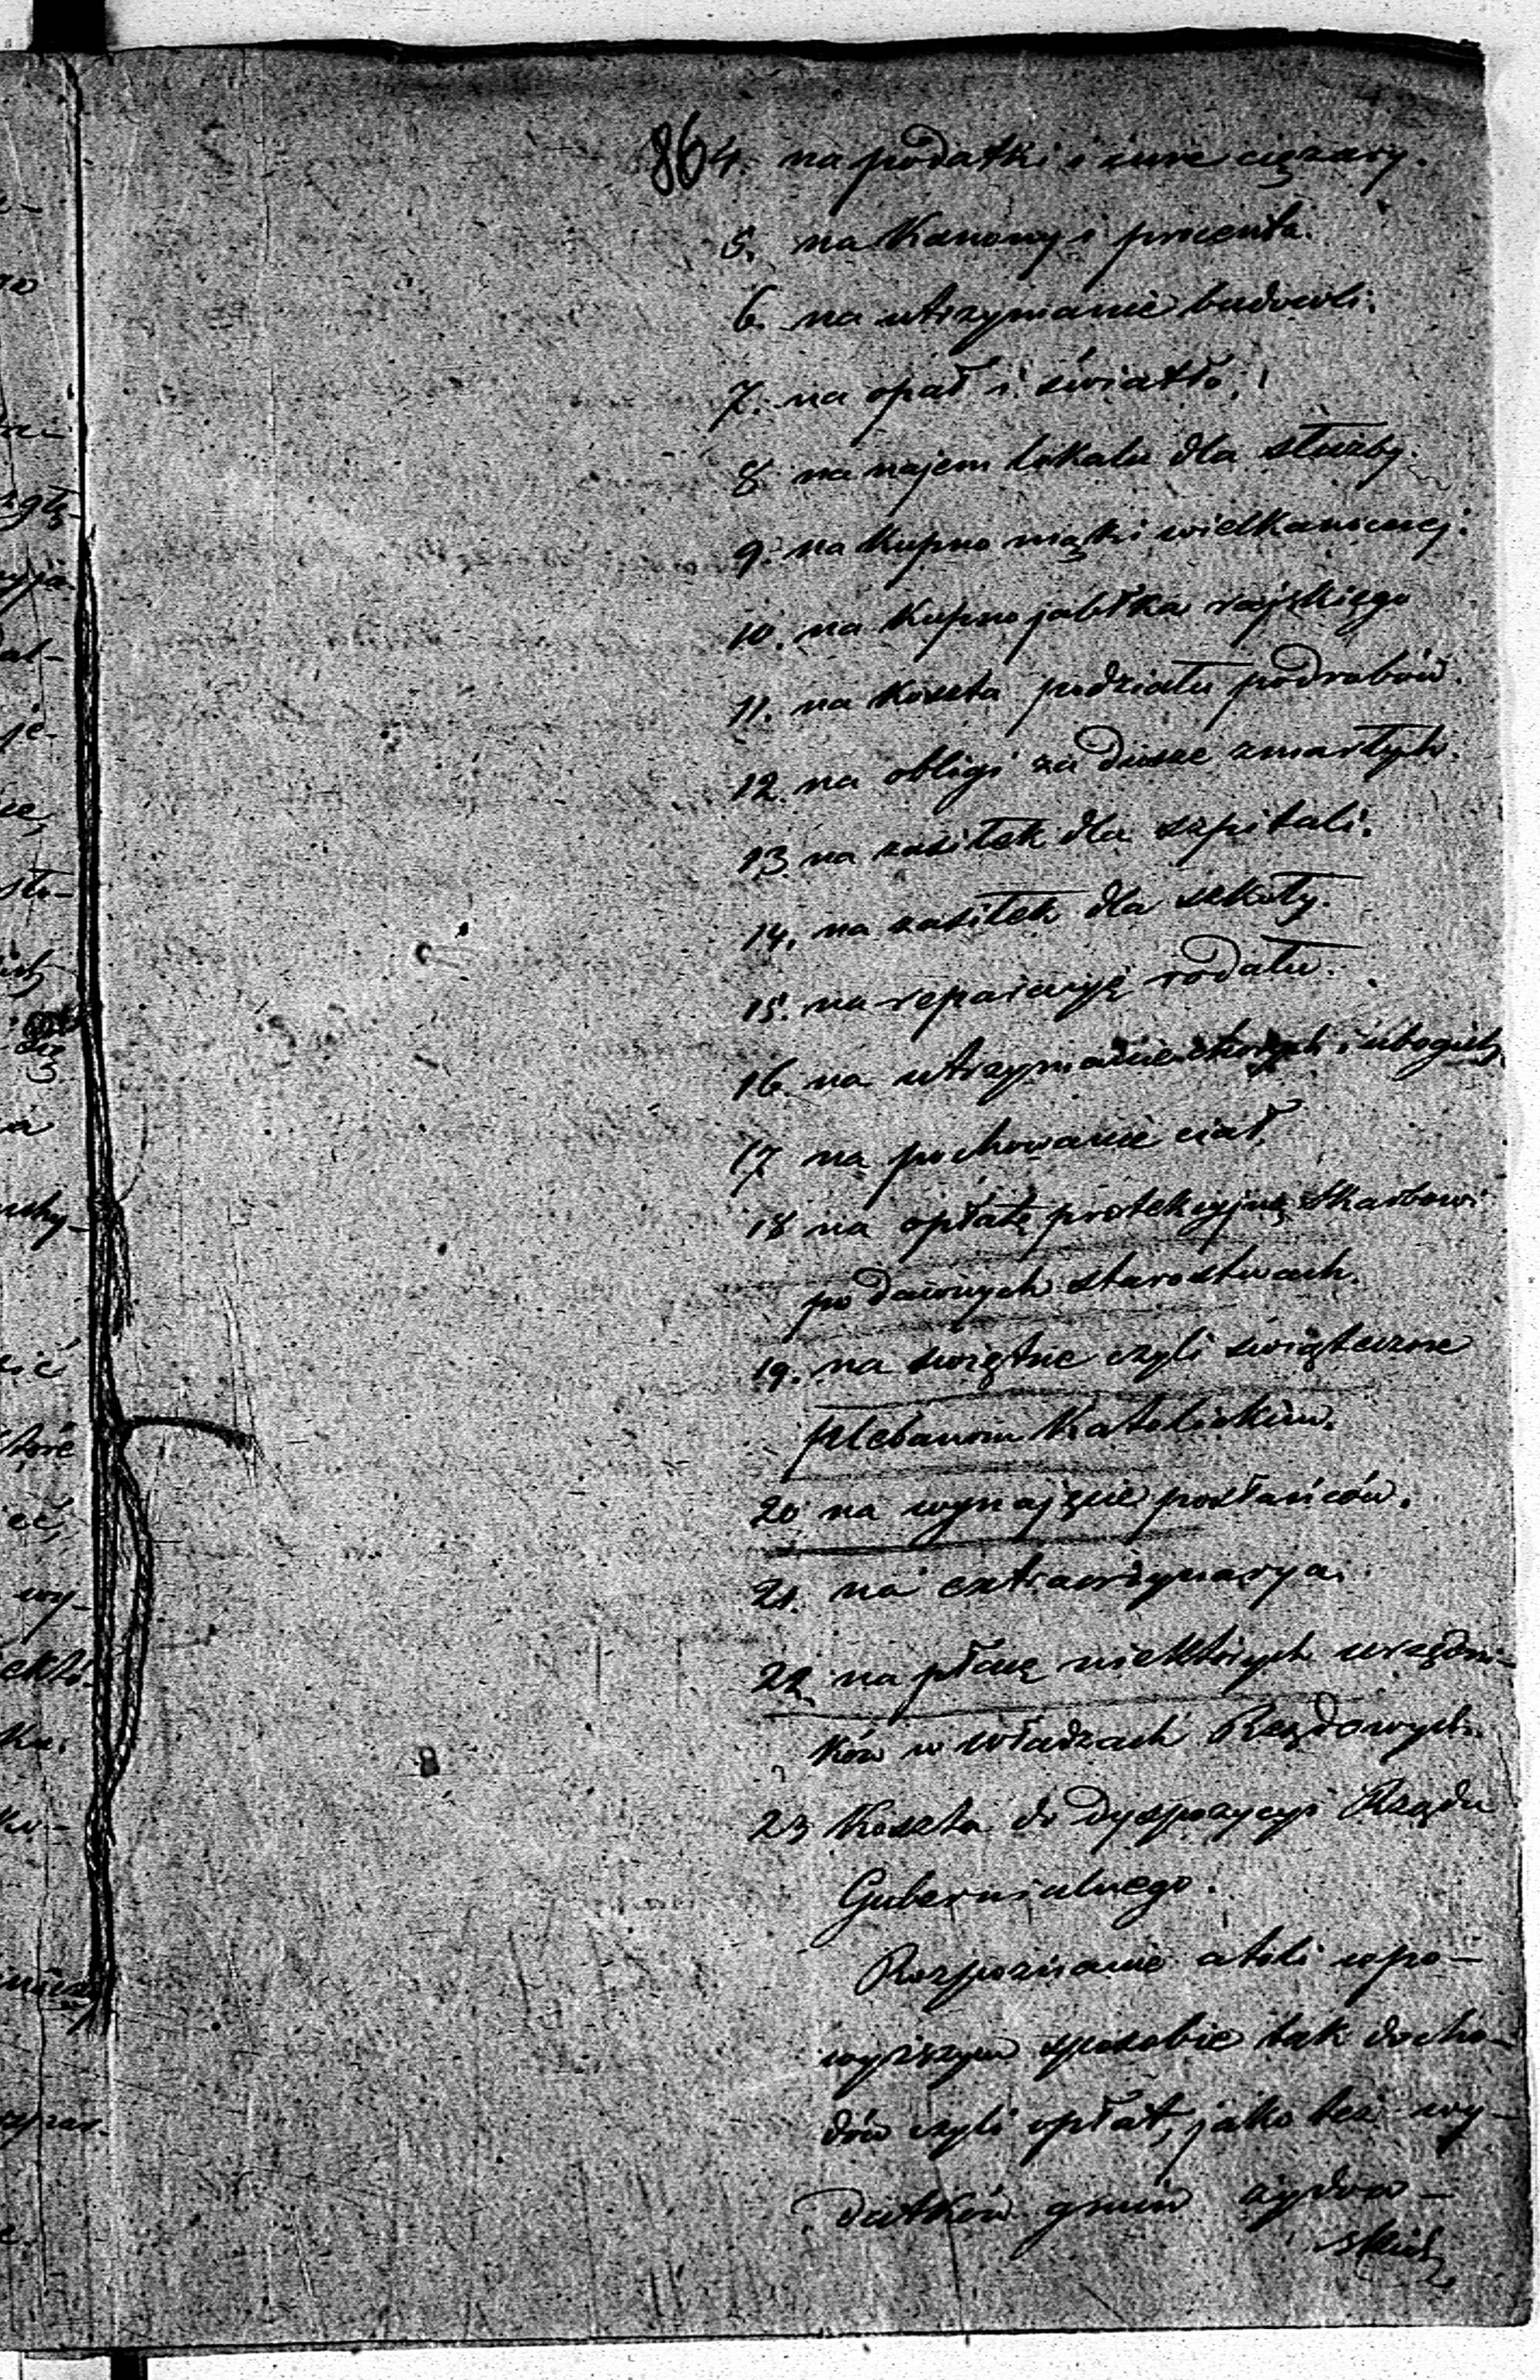 86
4. na podatki i inne ciężary.
5. na Kanony i procenta.
6. na utrzymanie budowli.
7. na opał i światło.
8 na najem lokalu dla służby.
9. na kupno mąki wielkanocnej.
10. na kupno jabłka rajskiego
11. na koszta podziału podrabów.
12. na obligi za dusze zmarłych.
13 na zasiłek dla szpitali.
14. na zasiłek dla szkoły.
15. na reparacyję rodału.
16 na utrzymanie chorych i ubogich
17 na pochowanie ciał
18 na opłatę protekcyjną Skarbowi
po dawnych starostwach.
19. na świętne czyli świąteczne
plebanom Katolickim.
20 na wynajęcie posłańców.
21. na extraordynarya.
22 na płacę niektórych urzędni-
ków w władzach Rządowych.
23 Koszta do dyspozycyi Rządu
Gubernialnego.
Rozpoznanie atoli w po-
wyższym sposobie tak docho-
dów czyli opłat, jako też wy-
datków gmin żydow-
skich